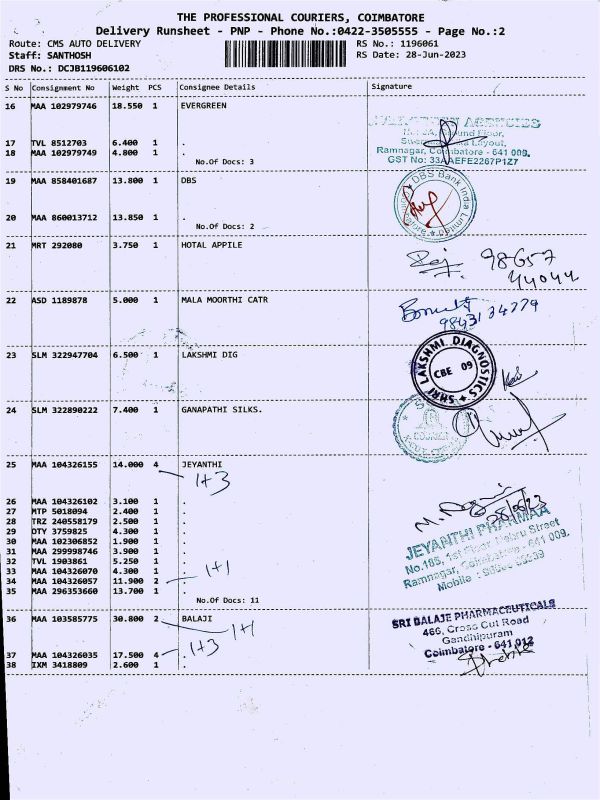 THE PROFESSIONAL COURIERS, COIMBATORE
Delivery Runsheet - PNP - Phone No.:0422-3505555 - Page No.:2
Route: CMS AUTO DELIVERY
RS No.: 1196061
Staff: SANTHOSH
RS Date: 28-Jun-2023
DRS No.: DCJB119606102
S No Consignment No Weight PCS Consignee Details Signature
16 MAA 102979746 18.550 1 EVERGREEN
AGENCIES
Floor,
Layout,
17 TVL 8512703 6.400 1 .
18 MAA 102979749 4.800 1 .
Ramnagar, Coimbatore - 641 009.
No.Of Docs: 3
GST No: 33AAEFE2267P1Z7
19 MAA 858401687 13.800 1 DBS
DBS Bank India Limited
20 MAA 860013712 13.850 1 .
No.Of Docs: 2
21 MRT 292080 3.750 1 HOTAL APPILE
98657
44044
22 ASD 1189878 5.000 1 MALA MOORTHI CATR
9843134779
23 SLM 322947704 6.500 1 LAKSHMI DIG
SHRI LAKSHMI DIAGNOSTICS
CBE 09
24 SLM 322890222 7.400 1 GANAPATHI SILKS.
25 MAA 104326155 14.000 4 JEYANTHI
1+3
26 MAA 104326102 3.100 1 .
27 MTP 5018094 2.400 1 .
28 TRZ 240558179 2.500 1 .
29 OTY 3759825 4.300 1 .
30 MAA 102306852 1.900 1 .
31 MAA 299998746 3.900 1 .
32 TVL 1903861 5.250 1 .
33 MAA 104326070 4.300 1 .
34 MAA 104326057 11.900 2 .
1+1
35 MAA 296353660 13.700 1 .
No.Of Docs: 11
28/06/23
JEYANTHI PHARMAA
No.185, 1st Floor, Nehru Street
Ramnagar, Coimbatore - 641 009.
Mobile :
36 MAA 103585775 30.800 2 BALAJI
1+1
SRI BALAJE PHARMACEUTICALS
466, Cross Cut Road
Gandhipuram
Coimbatore - 641 012
37 MAA 104326035 17.500 4 .
1+3
38 IXM 3418809 2.600 1 .